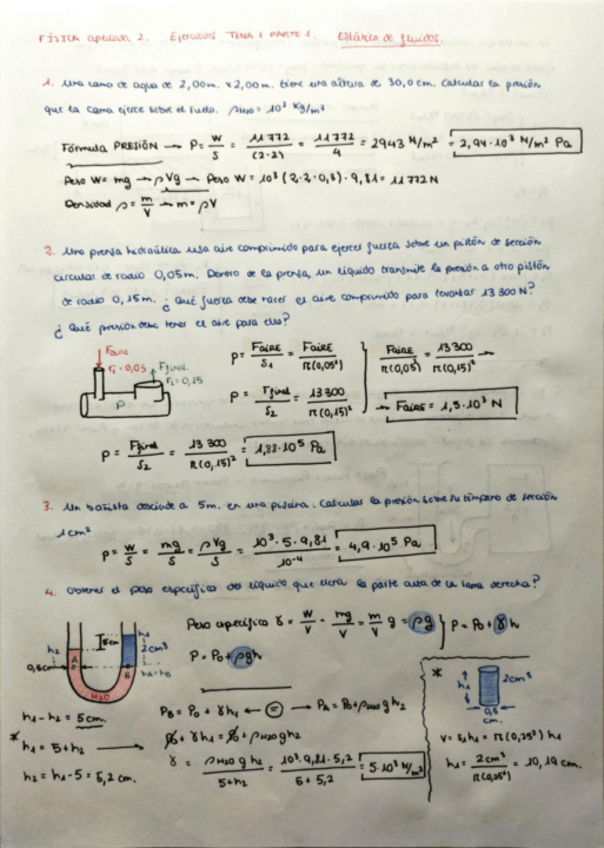 FÍSICA aplicada 2. Ejercicios TEMA 1 PARTE 1. Estática de fluidos.
1. Una cama de agua de 2,00m. x 2,00m. tiene una altura de 30,0cm. Calcular la presión
que la cama ejerce sobre el suelo. ρH2O = 10³ Kg/m³
Fórmula PRESIÓN → P = W/S = 11772/(2·2) = 11772/4 = 2943 N/m² = 2,94·10³ N/m² Pa
Peso W = mg → ρVg → Peso W = 10³ (2·2·0,3)·9,81 = 11772N
Densidad ρ = m/V → m = ρV
2. Una prensa hidraúlica usa aire comprimido para ejercer fuerza sobre un pistón de sección
circular de radio 0,05m. Dentro de la prensa, un líquido transmite la presión a otro pistón
de radio 0,15m. ¿Qué fuerza debe hacer el aire comprimido para levantar 13300N?
¿Qué presión debe tener el aire para ello?
Faire
r1=0,05
Ffinal
r2=0,15
P
P = FAIRE/S1 = FAIRE/π(0,05²)
P = Ffinal/S2 = 13300/π(0,15)²
FAIRE/π(0,05) = 13300/π(0,15)² →
→ FAIRE = 1,5·10³ N
P = Ffinal/S2 = 13300/π(0,15)² = 1,88·10⁵ Pa
3. Un bañista desciende a 5m. en una piscina. Calcular la presión sobre su tímpano de sección
1cm²
P = W/S = mg/S = ρVg/S = 10³·5·9,81/10⁻⁴ = 4,9·10⁵ Pa
4. Obtener el peso específico del líquido que llena la parte alta de la rama derecha?
h2
5cm
h1
2cm³
0,5cm
A
B
hA=hB
H2O
Peso específico γ = W/V = mg/V = m/V g = ρg } P = P0 + γh
P = P0 + ρgh
h1 - h2 = 5cm.
* h1 = 5+h2 →
h2 = h1-5 = 5,2 cm.
PB = P0 + γh1 ← = → PA = P0 + ρH2O g h2
P0 + γh1 = P0 + ρH2O g h2
γ = ρH2O g h2/5+h2 = 10³·9,81·5,2/5+5,2 = 5·10³ N/m³
*
h1
2cm³
0,5
cm.
V = S1h1 = π(0,25²) h1
h1 = 2cm³/π(0,25²) = 10,19 cm.